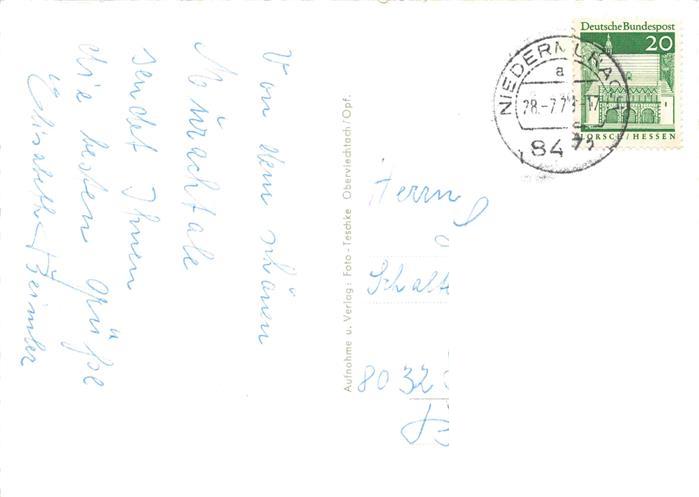 Von dem schönen
Mürachtale
sendet Ihnen
die besten Grüße
Elisabeth Beimler
Aufnahme u. Verlag: Foto-Teschke Oberviechtach/Opf.
Deutsche Bundespost
20
LORSCH/HESSEN
NIEDERMURACH
a
28.-7.7
84
Herrn
Schalt
8032